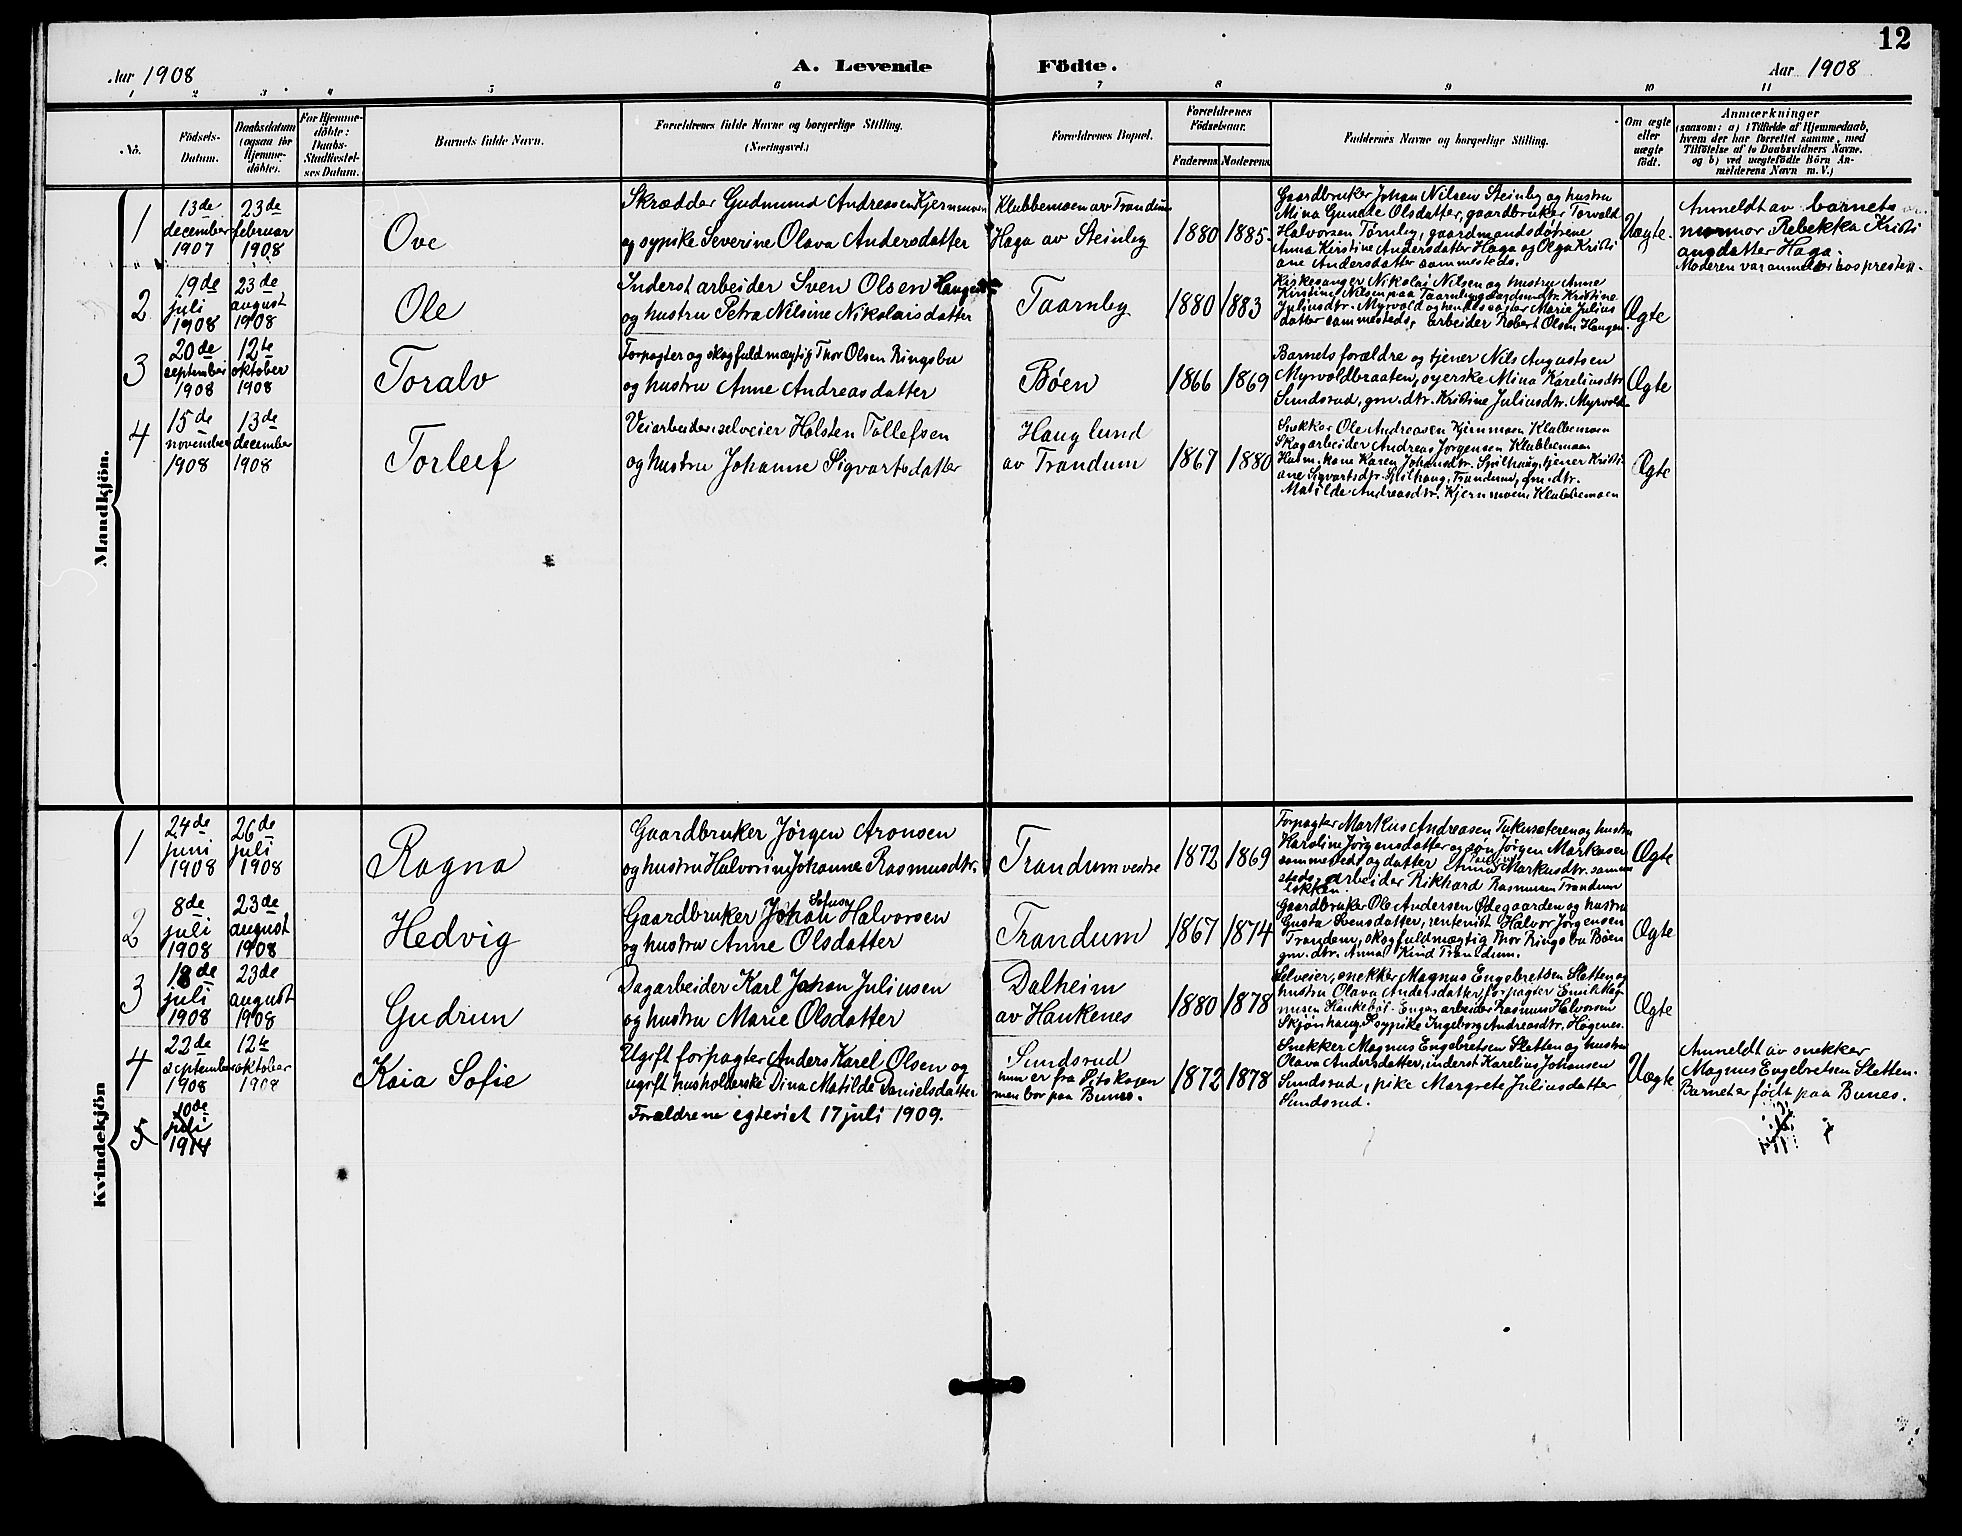 12
Aar 1908
A. Levende Födte.
Aar 1908
1 2 3 4 5 6 7 8 9 10 11
No.
Födsels-
Datum.
Daabsdatum
(ogsaa for
Hjemme-
döbte).
For Hjemme-
döbte:
Daabs-
Stadfæstel-
ses Datum.
Barnets fulde Navn.
Forældrenes fulde Navne og borgerlige Stilling.
(Næringsvei.)
Forældrenes Bopæl.
Forældrenes
Födselsaar.
Faderens
Moderens
Faddernes Navne og borgerlige Stilling.
Om ægte
eller
uægte
födt.
Anmærkninger
(saasom: a) i Tilfælde af Hjemmedaab,
hvem der har forrettet samme, med
Tilföielse af to Daabsvidners Navne.
og b) ved uægtefödte Börn An-
melderens Navn m. V.)
Mandkjön.
1
13de
december
1907
23de
februar
1908
Ove
Skrædder Gudmund Andreasen Kjernmoen
og sypike Severine Olava Andersdatter
Klubbemoen av Trandum
Haga av Steinby
1880
1885
Gaardbruker Johan Nilsen Steinby og hustru
Mina Gunde Olsdatter, gaardbruker Torvald
Halvorsen Tørnby, gaardmandsdøtrene
Anna Kirstine Andersdatter Haga og Olga Kristi
ane Andersdatter sammesteds.
Uægte.
Anmeldt av barnets
mormor Rebekka Kristi
ansdatter Haga.
Moderen var anmelder hos presten.
2
19de
juli
1908
23de
august
1908
Ole
Inderst arbeider Sven Olsen Haugen
og hustru Petra Nilsine Nikolaisdatter
Taarnby
1880
1883
Kirkesanger Nikolai Nilsen og hustru Anne
Kirstine Nilsen paa Taarnby, gaardmdtr. Kristine
Juliusdtr. Myrvold og hendes søster Marie Julius
datter sammesteds, arbeider Robert Olsen Haugen.
Ægte
3
20de
september
1908
12te
oktober
1908
Toralv
Forpagter og skogfuldmægtig Thor Olsen Ringsbu
og hustru Anne Andreasdatter
Bøen
1866
1869
Barnets forældre og tjener Nils Augustsen
Myrvoldbraaten, syerske Mina Kareliusdtr
Sundsrud, gm. dtr. Kristine Juliusdtr. Myrvold
Ægte
4
15de
november
1908
13de
december
1908
Torleif
Veiarbeider, selveier Halsten Tollefsen
og hustru Johanne Sigvartsdatter
Hauglund
av Trandum
1867
1880
Snekker Ole Andreasen Kjernmoen Klubbemoen
Skogarbeider Andreas Jørgensen Klubbemoen
Husm. kone Karen Johansdtr. Spilhaug, tjener Kristi
ane Sigvartsdtr. Spilhaug, Trandum, gm. dtr.
Matilde Andreasdtr. Kjernmoen, Klubbemoen
Ægte
Kvindekjön
1
24de
juni
1908
26de
juli
1908
Ragna
Gaardbruker Jørgen Aronsen
og hustru Halvorine Johanne Rasmusdtr.
Trandum vestre
1872
1869
Forpagter Markus Andreasen Tukusæteren og hustru
Karoline Jørgensdatter og søn Jørgen Markusen
sammesteds og datter Anna Markusdtr. samme
steds, arbeider Rikhard Rasmusen Trandum
løkken.
Ægte
2
8de
juli
1908
23de
august
1908
Hedvig
Gaardbruker Johan Sofus Halvorsen
og hustru Anne Olsdatter
Trandum
1867
1874
Gaardbruker Ole Andersen Ødegaarden og hustru
Gusta Svensdatter, rentenist Halvor Jørgensen
Trandem, skogfuldmægtig Thor Ringsbu Bøen
gm. dtr. Anna Kind Trandum.
Ægte
3
18de
juli
1908
23de
august
1908
Gudrun
Dagarbeider Karl Johan Juliusen
og hustru Marie Olsdatter
Dalheim
av Haukenes
1880
1878
Selveier, snekker Magnus Engebretsen Sletten og
hustru Olava Andersdatter, forpagter Emil Mag
nusen Haukebøl-Engen, arbeider Rasmus Halvorsen
Skjønhaug, sypike Ingeborg Andreasdtr. Høgenes.
Ægte
4
22de
september
1908
12te
oktober
1908
Kaia Sofie
Ugift forpagter Anders Karel Olsen og
ugift husholderske Dina Matilde Danielsdatter
Forældrene egteviet 17 juli 1909.
Sundsrud
hun er fra Sitskogen
men bor paa Bunes.
1872
1878
Snekker Magnus Engebretsen Sletten og hustru
Olava Andersdatter, inderst Karelius Johansen
Sundsrud, pike Margrete Juliusdatter
Sundsrud.
Uægte
Anmeldt av snekker
Magnus Engebretsen Sletten.
Barnet er født paa Bunes.
5
10de
juli
1914